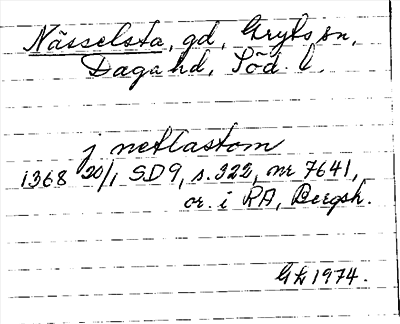 Nässelsta, gd, Gryts sn,
Daga hd, Söd. l.
j netlastom
1368 20/1 SD 9, s. 322, nr 7641,
or. i RA, Bergsh.
GL 1974.